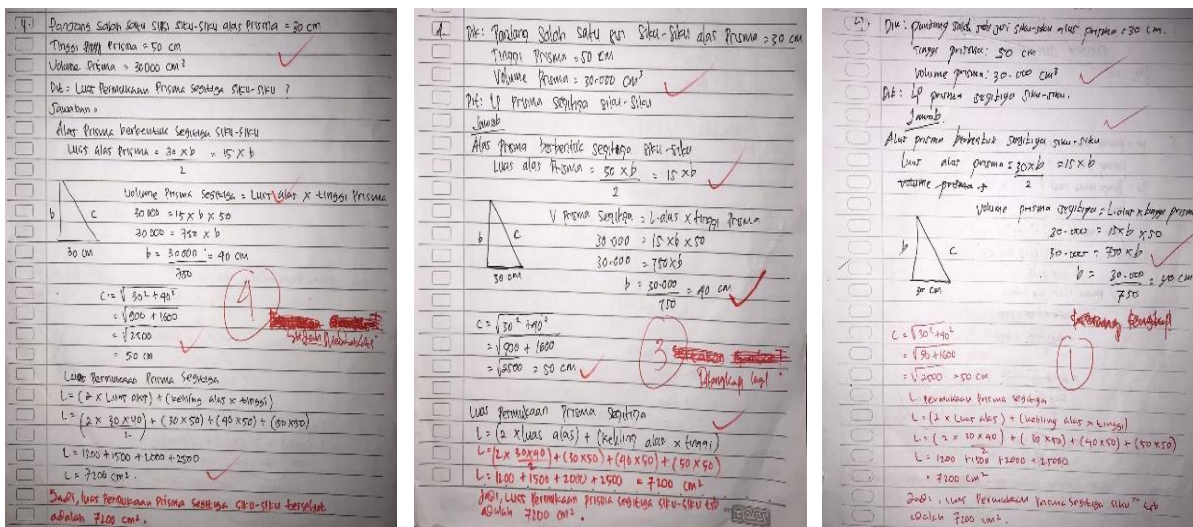 4. Panjang Salah satu sisi siku-siku alas Prisma = 30 cm
Tinggi Prisma = 50 cm
Volume Prisma = 30000 cm³
Dit = Luas Permukaan Prisma Segitiga siku-siku ?
Jawaban =
Alas Prisma berbentuk segitiga siku-siku
Luas alas Prisma = 30 x b / 2 = 15 x b
Volume Prisma Segitiga = Luas alas x tinggi Prisma
30 000 = 15 x b x 50
30 000 = 750 x b
b = 30 000 / 750 = 40 cm
b c
30 cm
c = √30² + 40²
= √900 + 1600
= √2500
= 50 cm
4
Luas Permukaan Prisma Segitiga
L = (2 x Luas alas) + (keliling alas x tinggi)
L = (2 x 30 x 40 / 2) + (30 x 50) + (40 x 50) + (50 x 50)
L = 1200 + 1500 + 2000 + 2500
L = 7200 cm².
Jadi, luas Permukaan Prisma Segitiga siku-siku tersebut
adalah 7200 cm².
Dik: Panjang Salah satu sisi siku-siku alas Prisma = 30 cm
Tinggi Prisma = 50 cm
Volume Prisma = 30.000 cm³
Dit: LP prisma segitiga siku-siku
Jawab
Alas Prisma berbentuk segitiga siku-siku
Luas alas Prisma = 30 x b / 2 = 15 x b
V Prisma Segitiga = L.alas x tinggi Prisma
30.000 = 15 x b x 50
30.000 = 750 x b
b = 30.000 / 750 = 40 cm
b c
30 cm
c = √30² + 40²
= √900 + 1600
= √2500 = 50 cm
3
Lengkap lagi
Luas Permukaan Prisma Segitiga
L = (2 x luas alas) + (keliling alas x tinggi)
L = (2 x 30 x 40 / 2) + (30 x 50) + (40 x 50) + (50 x 50)
L = 1200 + 1500 + 2000 + 2500 = 7200 cm²
Jadi, Luas Permukaan prisma segitiga siku-siku tsb
adalah 7200 cm².
Dik: panjang salah satu sisi siku-siku alas prisma = 30 cm.
Tinggi prisma: 50 cm
Volume prisma: 30.000 cm³
Dit: LP prisma segitiga siku-siku.
Jawab
Alas prisma berbentuk segitiga siku-siku
Luas alas prisma = 30 x b / 2 = 15 x b
volume prisma
Volume prisma segitiga = L.alas x tinggi prisma
30.000 = 15 x b x 50
30.000 = 750 x b
b = 30.000 / 750 = 40 cm
b c
30 cm
kurang lengkap
c = √30² + 40²
= √90 + 1600
= √2500 = 50 cm
1
L. permukaan Prisma segitiga
L = (2 x Luas alas) + (keliling alas x tinggi)
L = (2 x 30 x 40 / 2) + (30 x 50) + (40 x 50) + (50 x 50)
L = 1200 + 1500 + 2000 + 25000
= 7200 cm²
Jadi, luas Permukaan Prisma segitiga siku" tsb
adalah 7200 cm².